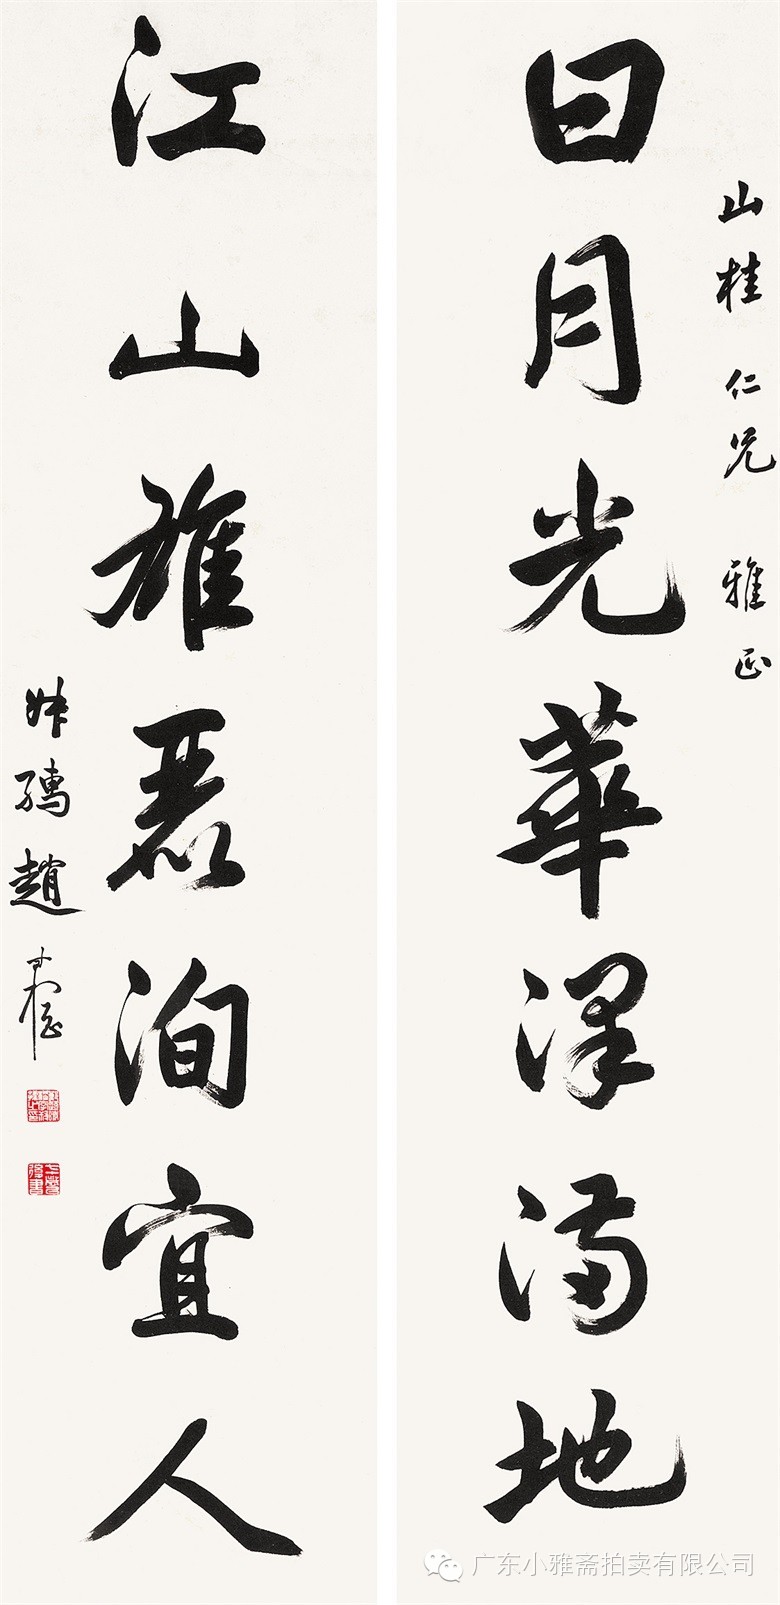 山桂仁兄 雅正
日月光華澤滿地
江山雄麗洵宜人
叔孺趙
广东小雅斋拍卖有限公司